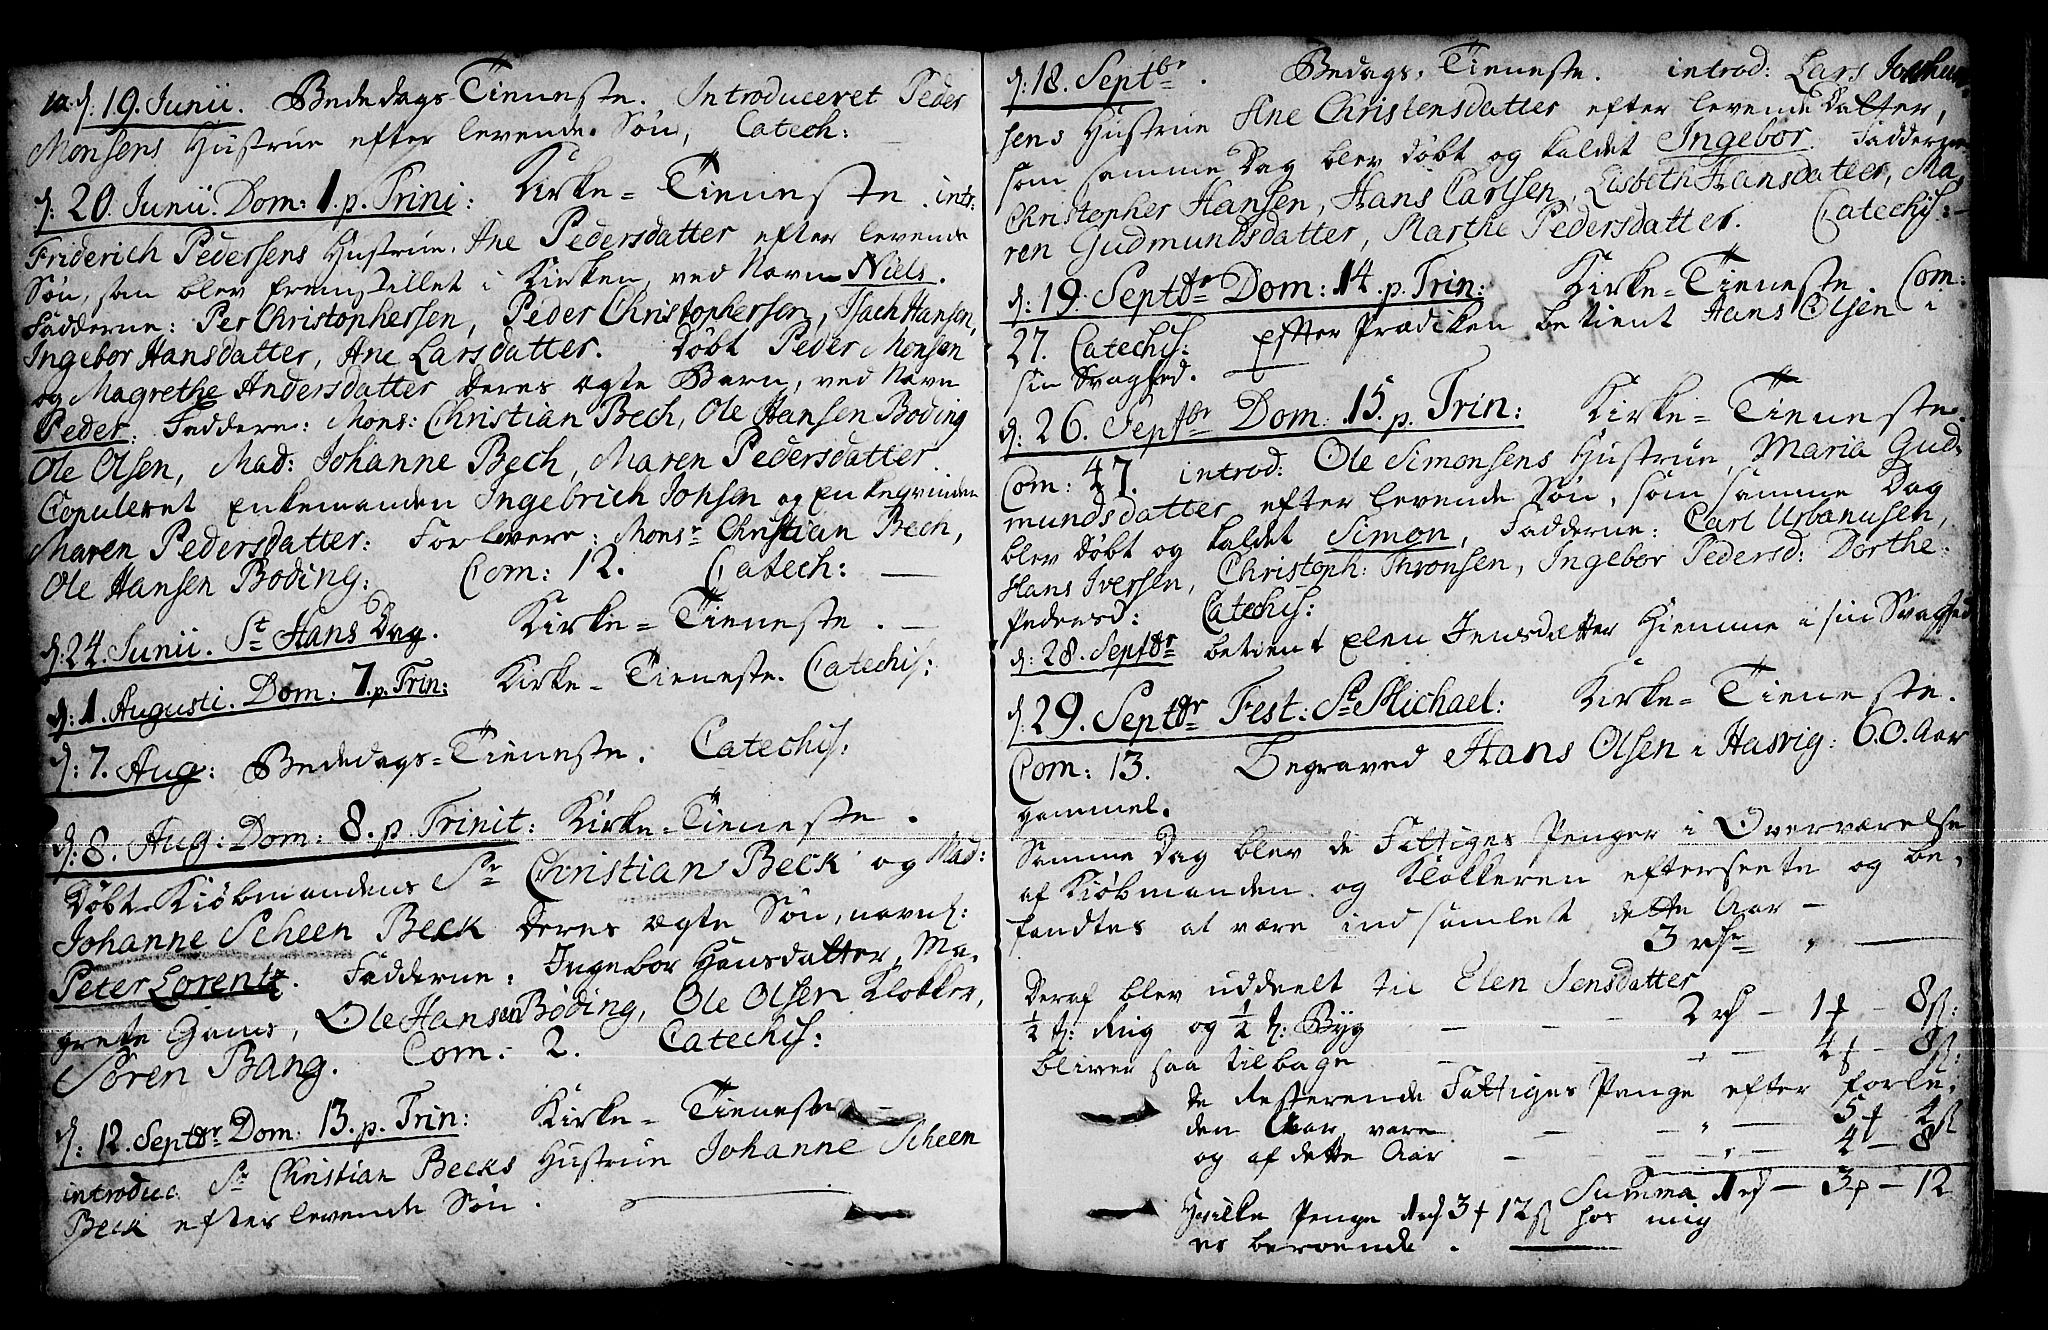 d: 19. Junii. Bededags-Tieneste. Introduceret Peder
Monsens Hustrue efter levende Søn, Catech:
d: 20. Junii. Dom: 1. p. Trini: Kirke-Tieneste. intr:
Friderich Pedersens Hustrue, Ane Pedersdatter efter levende
Søn, som blev fremstillet i Kirken, ved Navn Niels.
Fadderne: Per Christophersen, Peder Christophersen, Isach Hansen,
Ingebor Hansdatter, Ane Larsdatter. Døbt Peder Monsen
og Magrethe Andersdatter deres ægte Barn, ved Navn
Peder. Faddere: Mons: Christian Bech, Ole Hansen Boding
Ole Olsen, Mad: Johanne Bech, Maren Pedersdatter.
Copuleret Enkemanden Ingebrich Johsen og Enkeqvinden
Maren Pedersdatter: Forlovere: Monsr Christian Bech,
Ole Hansen Boding: Com: 12. Catech: —
d: 24. Junii. St Hans Dag. Kirke-Tieneste. —
d: 1. Augusti. Dom: 7. p. Trin: Kirke-Tieneste. Catechis:
d: 7. Aug: Bededags-Tieneste. Catechis:
d: 8. Aug: Dom: 8. p. Trinit: Kirke-Tieneste.
Døbt Kiøbmandens Sr Christian Beck og Mad:
Johanne Scheen Beck deres ægte Søn, navnl:
Peter Lorentz. Fadderne: Ingebor Hansdatter, Ma-
grete Gams, Ole Hansen Boding, Ole Olsen Klokker,
Søren Bang. Com: 2. Catechis:
d: 12. Septbr Dom: 13. p. Trin: Kirke-Tieneste —
introduc. Sr Christian Becks Hustrue Johanne Scheen
Beck efter levende Søn.
d: 18. Septbr. Bedags-Tieneste. introd: Lars
sens Hustrue Ane Christensdatter efter levende Datter,
som samme Dag blev døbt og kaldet Ingebor. Fadderne
Christopher Hansen, Hans Carlsen, Lisbeth Hansdatter, Ma-
ren Gudmundsdatter, Marthe Pedersdatter. Catechis: —
d: 19. Septbr Dom: 14. p. Trin: Kirke-Tieneste. Com:
27. Catechis: Efter Prædiken betient Hans Olsen i
sin Svaghed.
d: 26. Septbr Dom. 15. p. Trin: Kirke-Tieneste.
Com: 47. introd: Ole Simonsens Hustrue, Maria Gud-
mundsdatter efter levende Søn, som samme Dag
blev døbt og kaldet Simon, Fadderne: Carl Urbanusen,
Hans Iversen, Christoph: Thronsen, Ingebor Pedersd: Dorthe
Pedersd: Catechis:
d: 28. Septbr betient Elen Jensdatter hiemme i sin Svaghed
d: 29. Septbr Fest: St Michael: Kirke-Tieneste.
Com: 13. Begraved Hans Olsen i Hasvig: 60. Aar
gammel.
Samme Dag blev de Fattiges Penger i Overværelse
af Kiøbmanden og Klokkeren efterseete og be-
fandtes at være indsamlet dette Aar —
3 rdr " —
Deraf blev uddeelt til Elen Jensdatter
½ t: Rug og ½ t: Byg — — — 2 rd — 1 ƒ — 8 ß:
bliver saa tilbage — — " — 4 ƒ — 8 ß:
de resterende Fattiges Penge efter forle-
den Aar, vare — — " — 5 ƒ 4 ß
og af dette Aar — — — " — 4 — 8
Summa 1 rd — 3 ƒ — 12
Hvilke Penge 1 rd 3 ƒ 12 ß hos mig
er beroende.